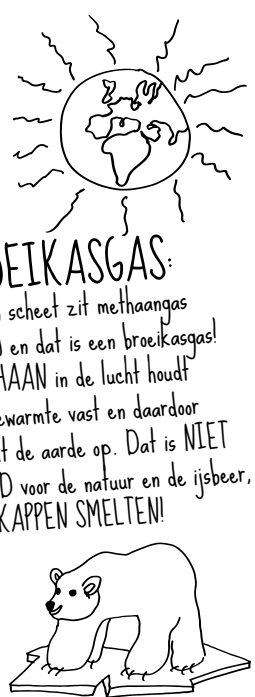 OEIKASGAS:
scheet zit methaangas
en dat is een broeikasgas!
HAAN in de lucht houdt
ewarmte vast en daardoor
t de aarde op. Dat is NIET
D voor de natuur en de ijsbeer,
KAPPEN SMELTEN!